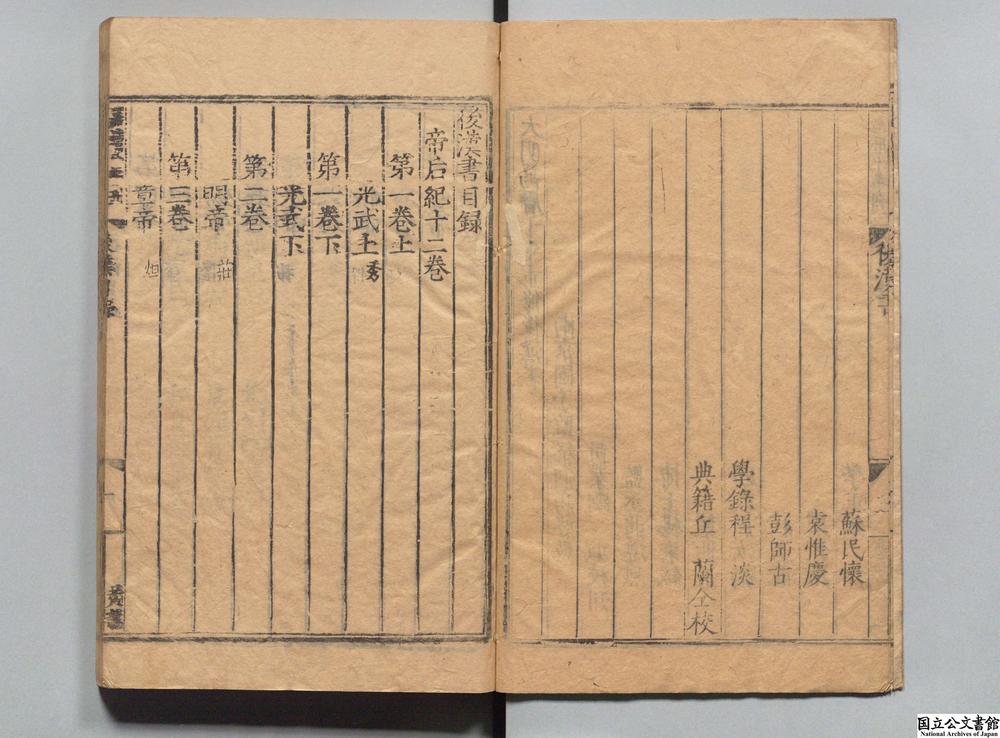 蘇民懷
袁惟慶
彭師古
學錄程 淡
典籍丘 蘭仝校
後漢書目録
帝后紀十二卷
第一卷上
光武上 秀
第一卷下
光武下
第二卷
明帝 莊
第三卷
章帝 炟
後漢書
国立公文書館
National Archives of Japan